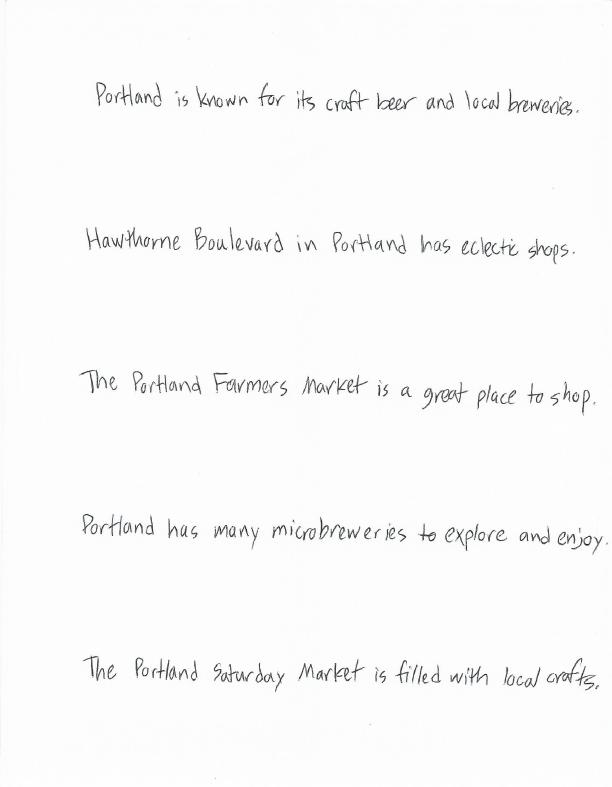 Portland is known for its craft beer and local breweries.
Hawthorne Boulevard in Portland has eclectic shops.
The Portland Farmers Market is a great place to shop.
Portland has many microbreweries to explore and enjoy.
The Portland Saturday Market is filled with local crafts.